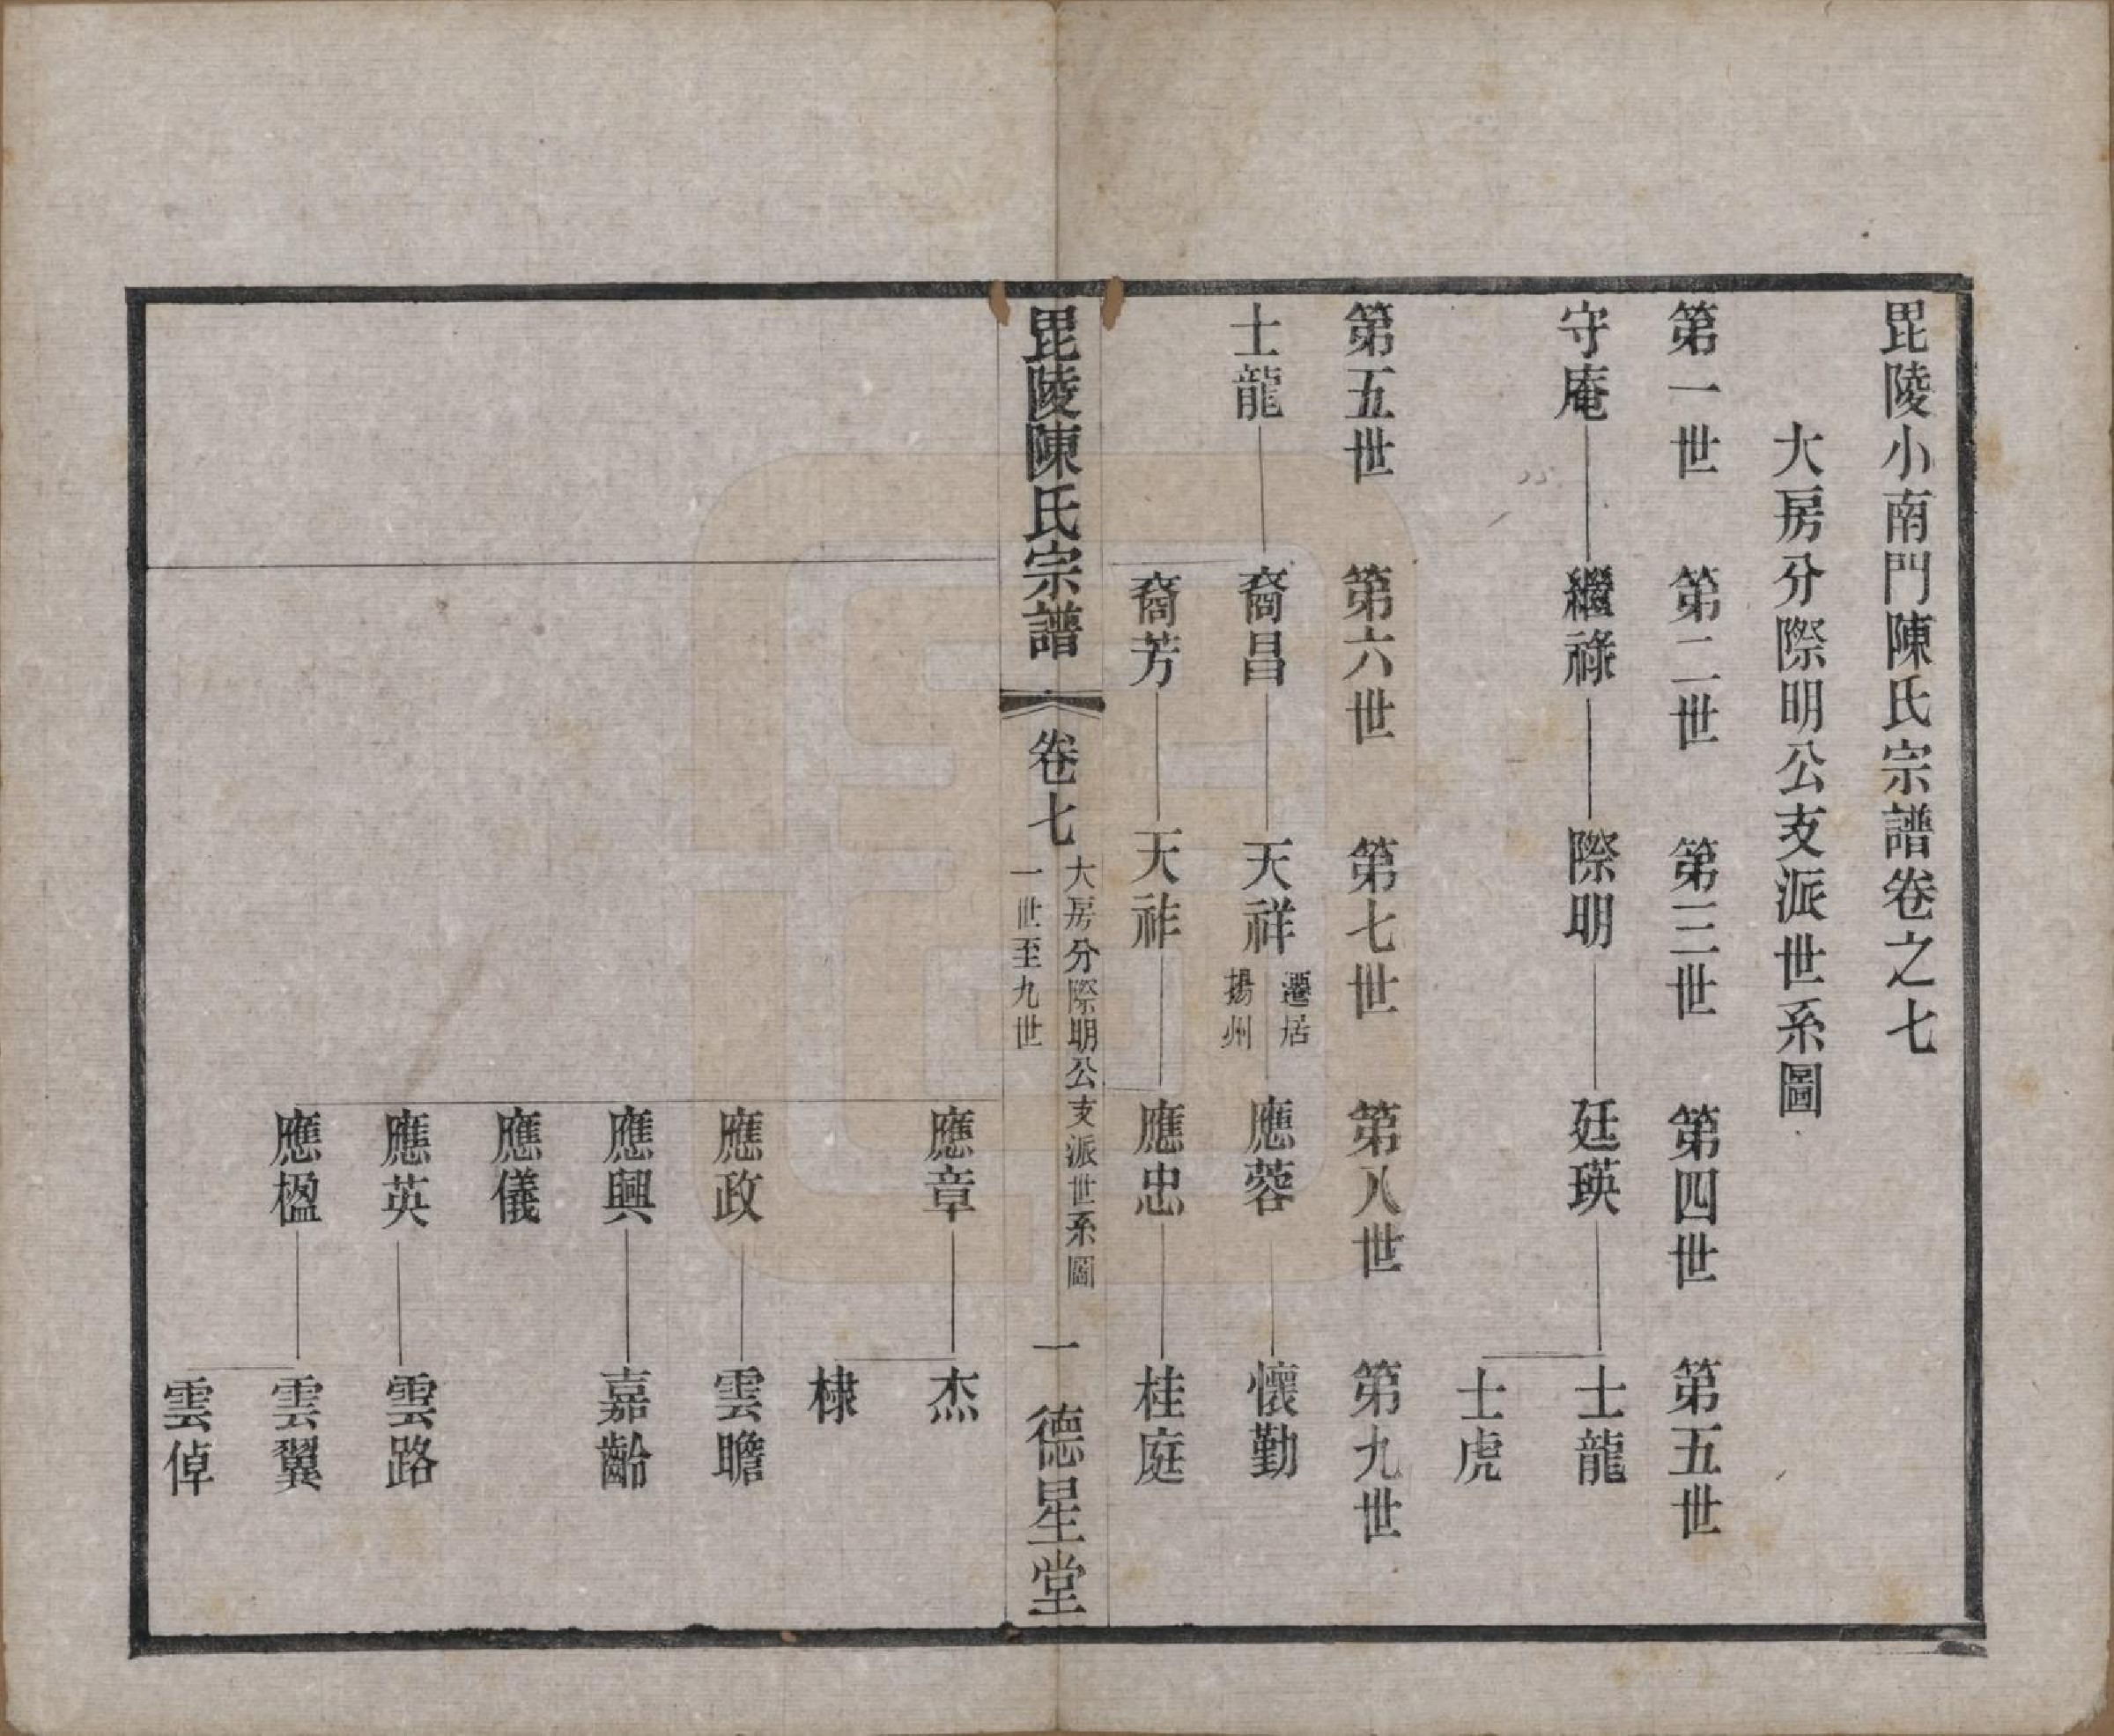 毘陵小南門陳氏宗譜卷之七
大房分際明公支派世系圖
第一世 第二世 第三世 第四世 第五世
守庵 繼祿 際明 廷瑛 士龍
士虎
第五世 第六世 第七世 第八世 第九世
士龍 裔昌 天祥 遷居揚州 應蓉 懷勤
裔芳 天祚 應忠 桂庭
毘陵陳氏宗譜 卷七 大房分際明公支派世系圖 一世至九世 一 德星堂
應章 杰
棣
應政 雲瞻
應興 嘉齡
應儀
應英 雲路
應楹 雲翼
雲倬